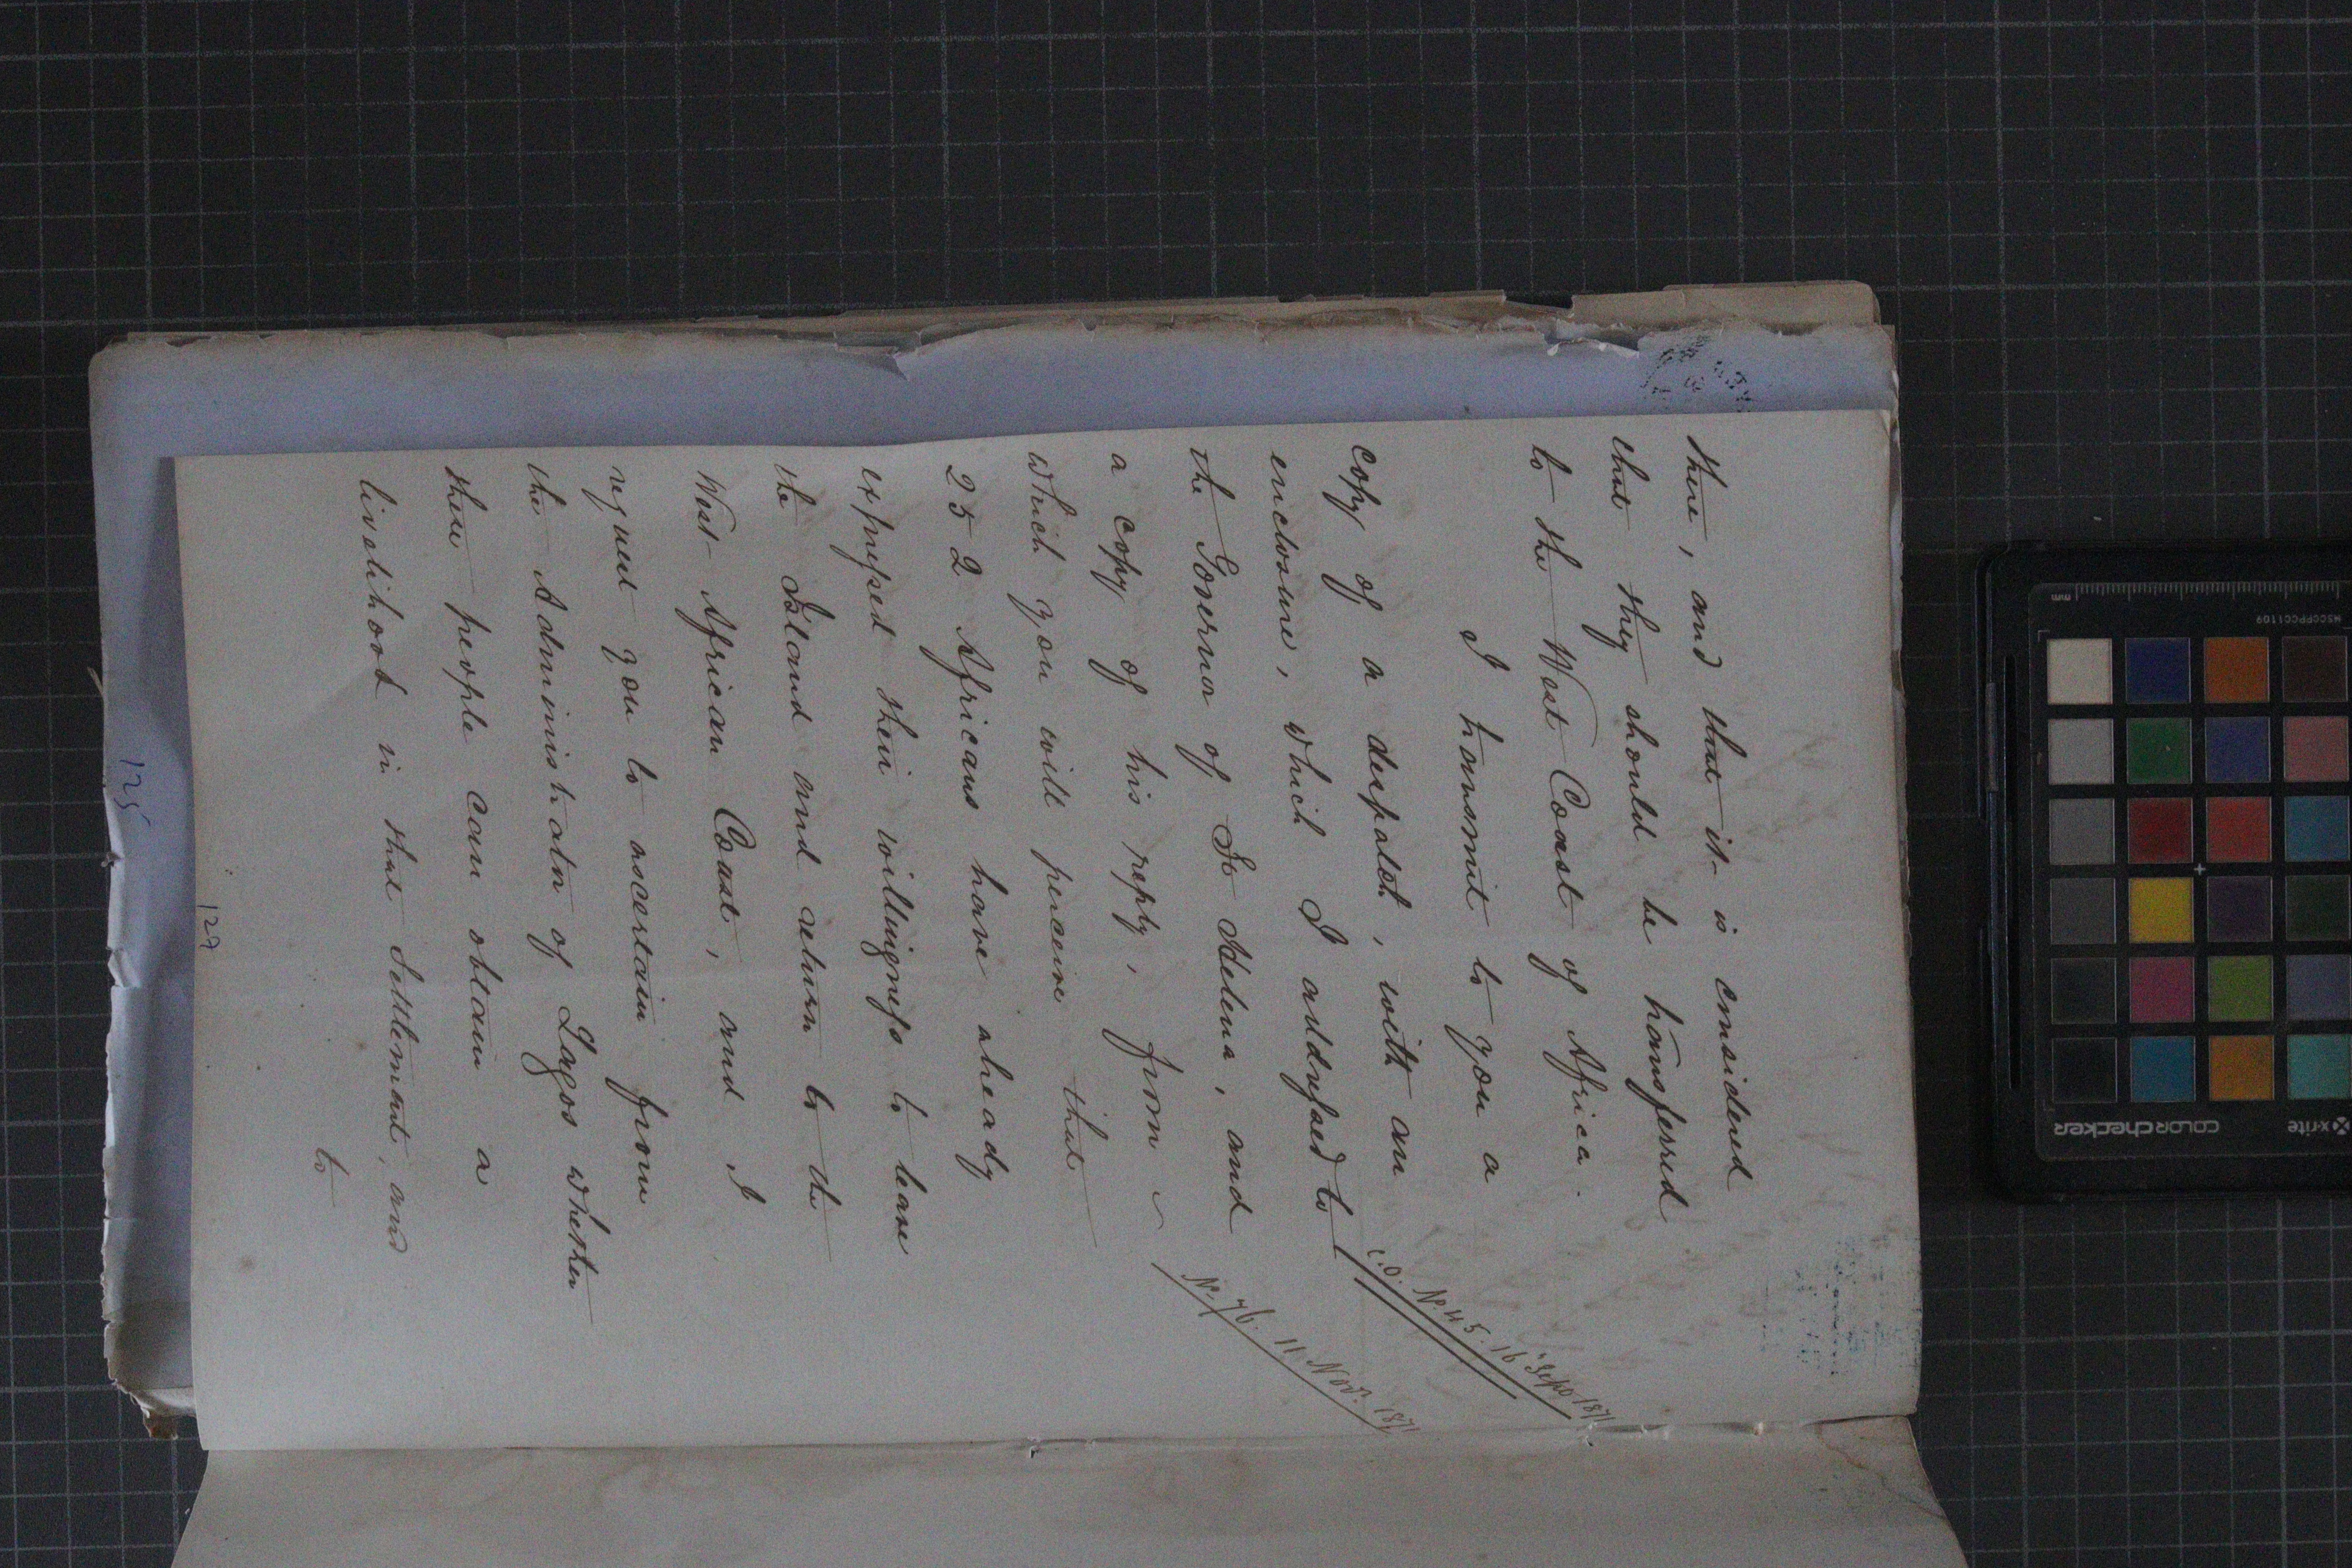 there, and that it is considered
that they should be transferred
to the West Coast of Africa.
I transmit to you a
copy of a despatch, with an
enclosure, which I addressed to
C.O. No. 45. 16 Sept 1871
the Governor of St Helena, and
a copy of his reply, from
No. 76. 11 Novr. 1871
which you will perceive that
252 Africans have already
expressed their willingness to leave
the Island and return to the
West African Coast, and I
request you to ascertain from
the Administrator of Lagos whether
these people can obtain a
livelihood in that Settlement, and
to
127
125
x-rite
COLORchecker
MSCCPPCC1109
mm